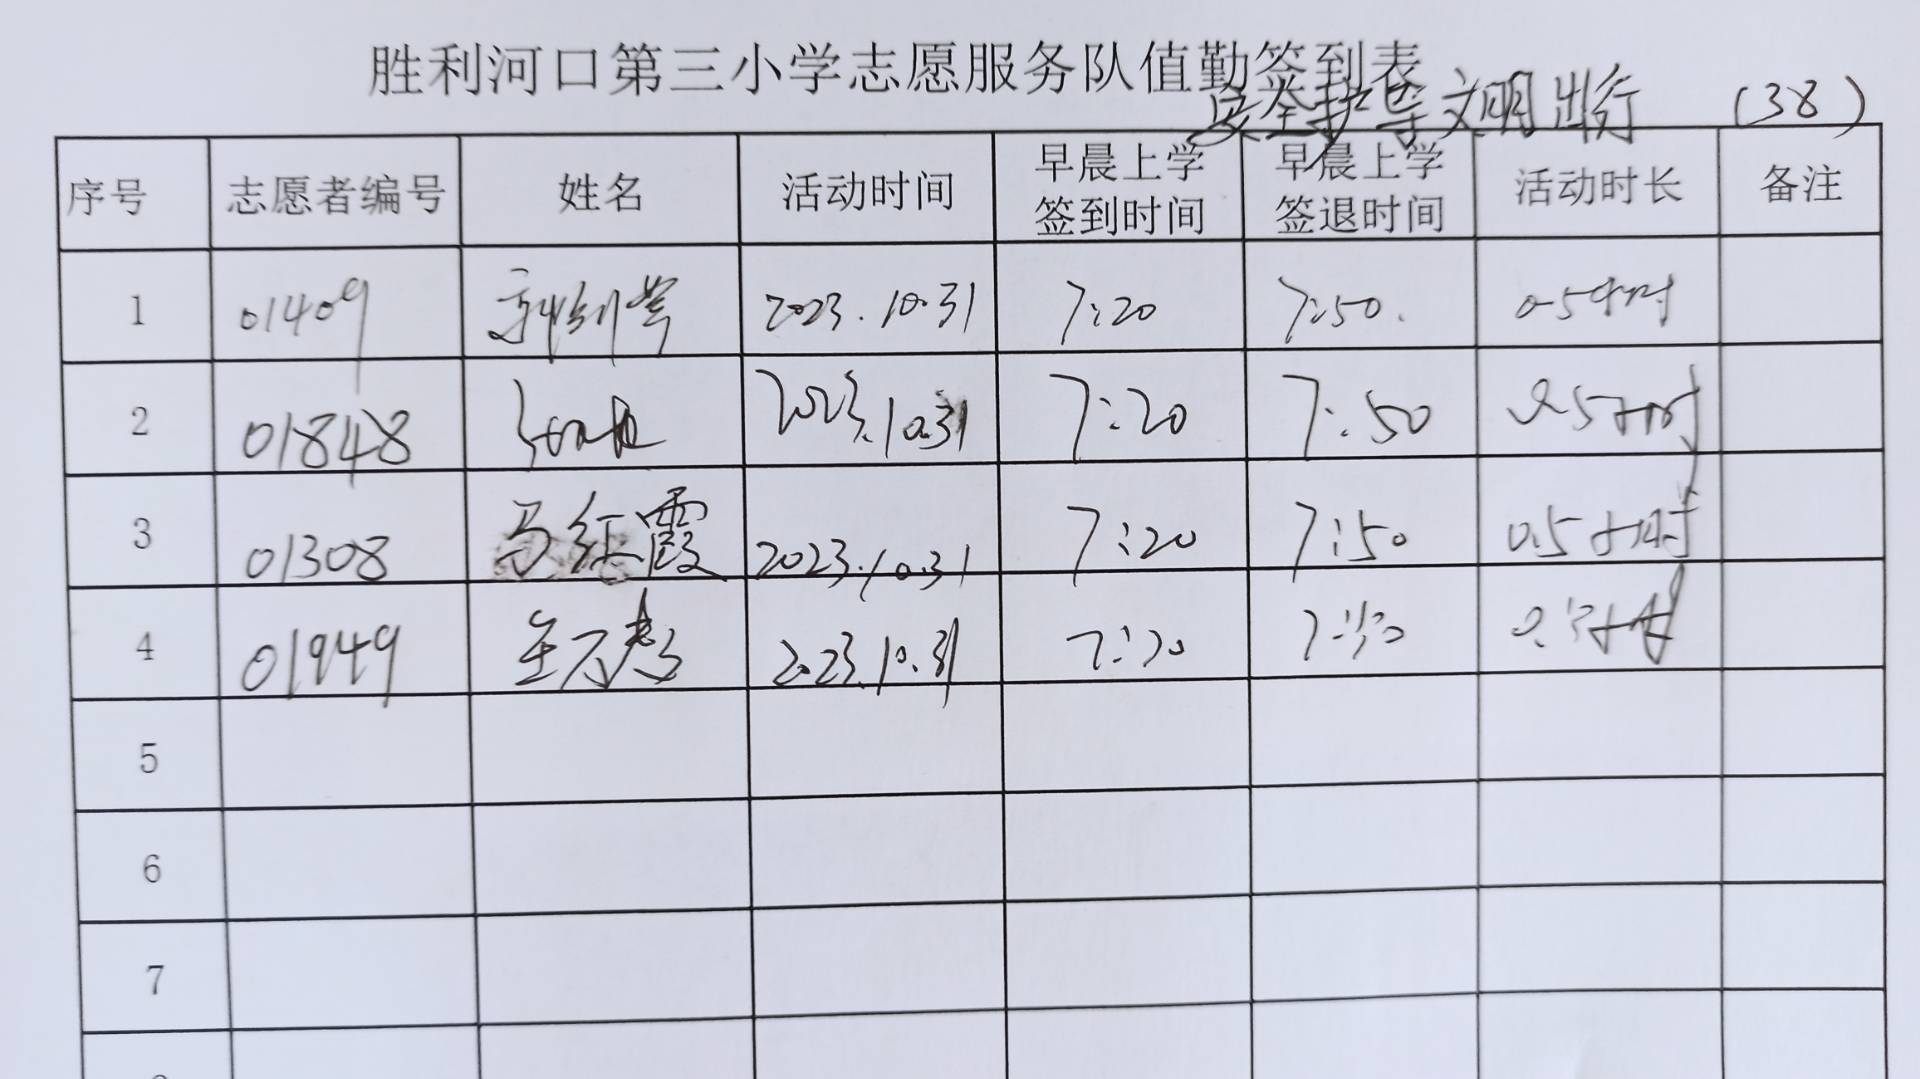 胜利河口第三小学志愿服务队值勤签到表
安全护导 文明出行 (38)
序号 志愿者编号 姓名 活动时间 早晨上学签到时间 早晨上学签退时间 活动时长 备注
1 01409 2023.10.31 7:20 7:50. 0.5小时
2 01848 2023.10.31 7:20 7:50 0.5小时
3 01308 马红霞 2023.10.31 7:20 7:50 0.5小时
4 01949 2023.10.31 7:20 7:50 0.5小时
5
6
7